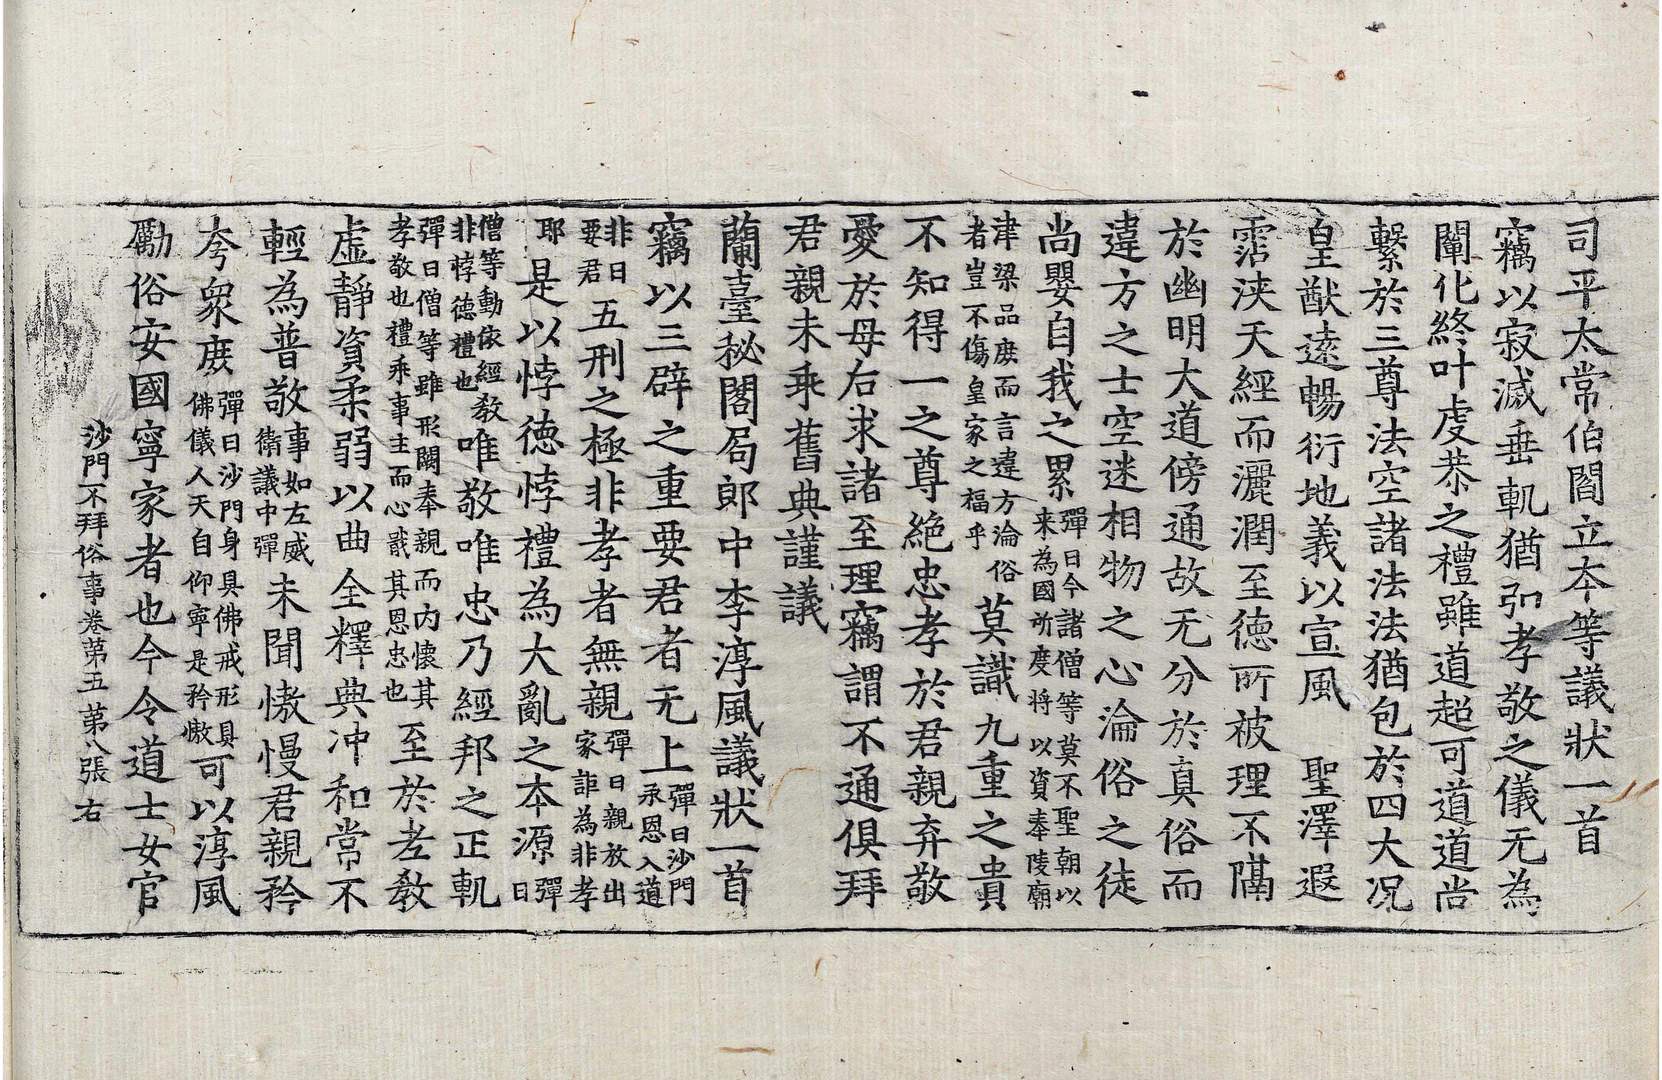 司平太常伯閻立本等議狀一首
竊以寂滅垂軌猶引孝敬之儀无為
闡化終叶虔恭之禮雖道超可道道尚
繫於三尊法空諸法法猶包於四大况
皇猷逺暢衍地義以宣風　聖澤遐
霑浹天經而灑潤至德所被理不隔
於幽明大道傍通故无分於真俗而
違方之士空迷相物之心淪俗之徒
尚嬰自我之累彈曰今諸僧等莫不聖朝以来為國所度将以資奉陵廟
津梁品庻而言違方淪俗者豈不傷皇家之福乎莫識九重之貴
不知得一之尊絶忠孝於君親弃敬
愛於母右求諸至理竊謂不通俱拜
君親未乖舊典謹議
蘭臺秘閣局郎中李淳風議狀一首
竊以三辟之重要君者无上彈曰沙門承恩入道
非曰要君五刑之極非孝者無親彈曰親放出家詎為非孝
耶是以悖德悖禮為大亂之本源彈曰
僧等動依經教非悖德禮也唯敬唯忠乃經邦之正軌
彈曰僧等雖形闕奉親而内懷其孝敬也禮乖事主而心戢其恩忠也至於老教
虚靜資柔弱以曲全釋典冲和常不
輕為普敬事如左威衛議中彈未聞慠慢君親矜
夸衆庻彈曰沙門身具佛戒形具佛儀人天自仰寧是矜慠可以淳風
勵俗安國寧家者也今令道士女官
沙門不拜俗事卷第五　第八張　右